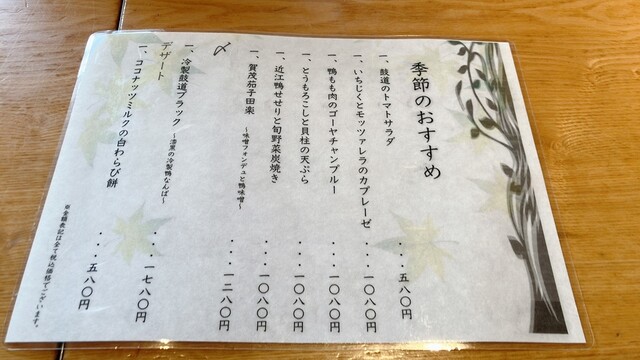 季節のおすすめ
一、鼓道のトマトサラダ ・・・五八〇円
一、いちじくとモッツァレラのカプレーゼ ・・・一〇八〇円
一、鴨もも肉のゴーヤチャンプルー ・・・一〇八〇円
一、とうもろこしと貝柱の天ぷら ・・・一〇八〇円
一、近江鴨せせりと旬野菜炭焼き ・・・一〇八〇円
一、賀茂茄子田楽 ～味噌フォンデュと鴨味噌～ ・・・一二八〇円
〆
一、冷製鼓道ブラック ～漆黒の冷製鴨なんば～ ・・・一七八〇円
デザート
一、ココナッツミルクの白わらび餅 ・・・五八〇円
※金額表記は全て税込価格でございます。